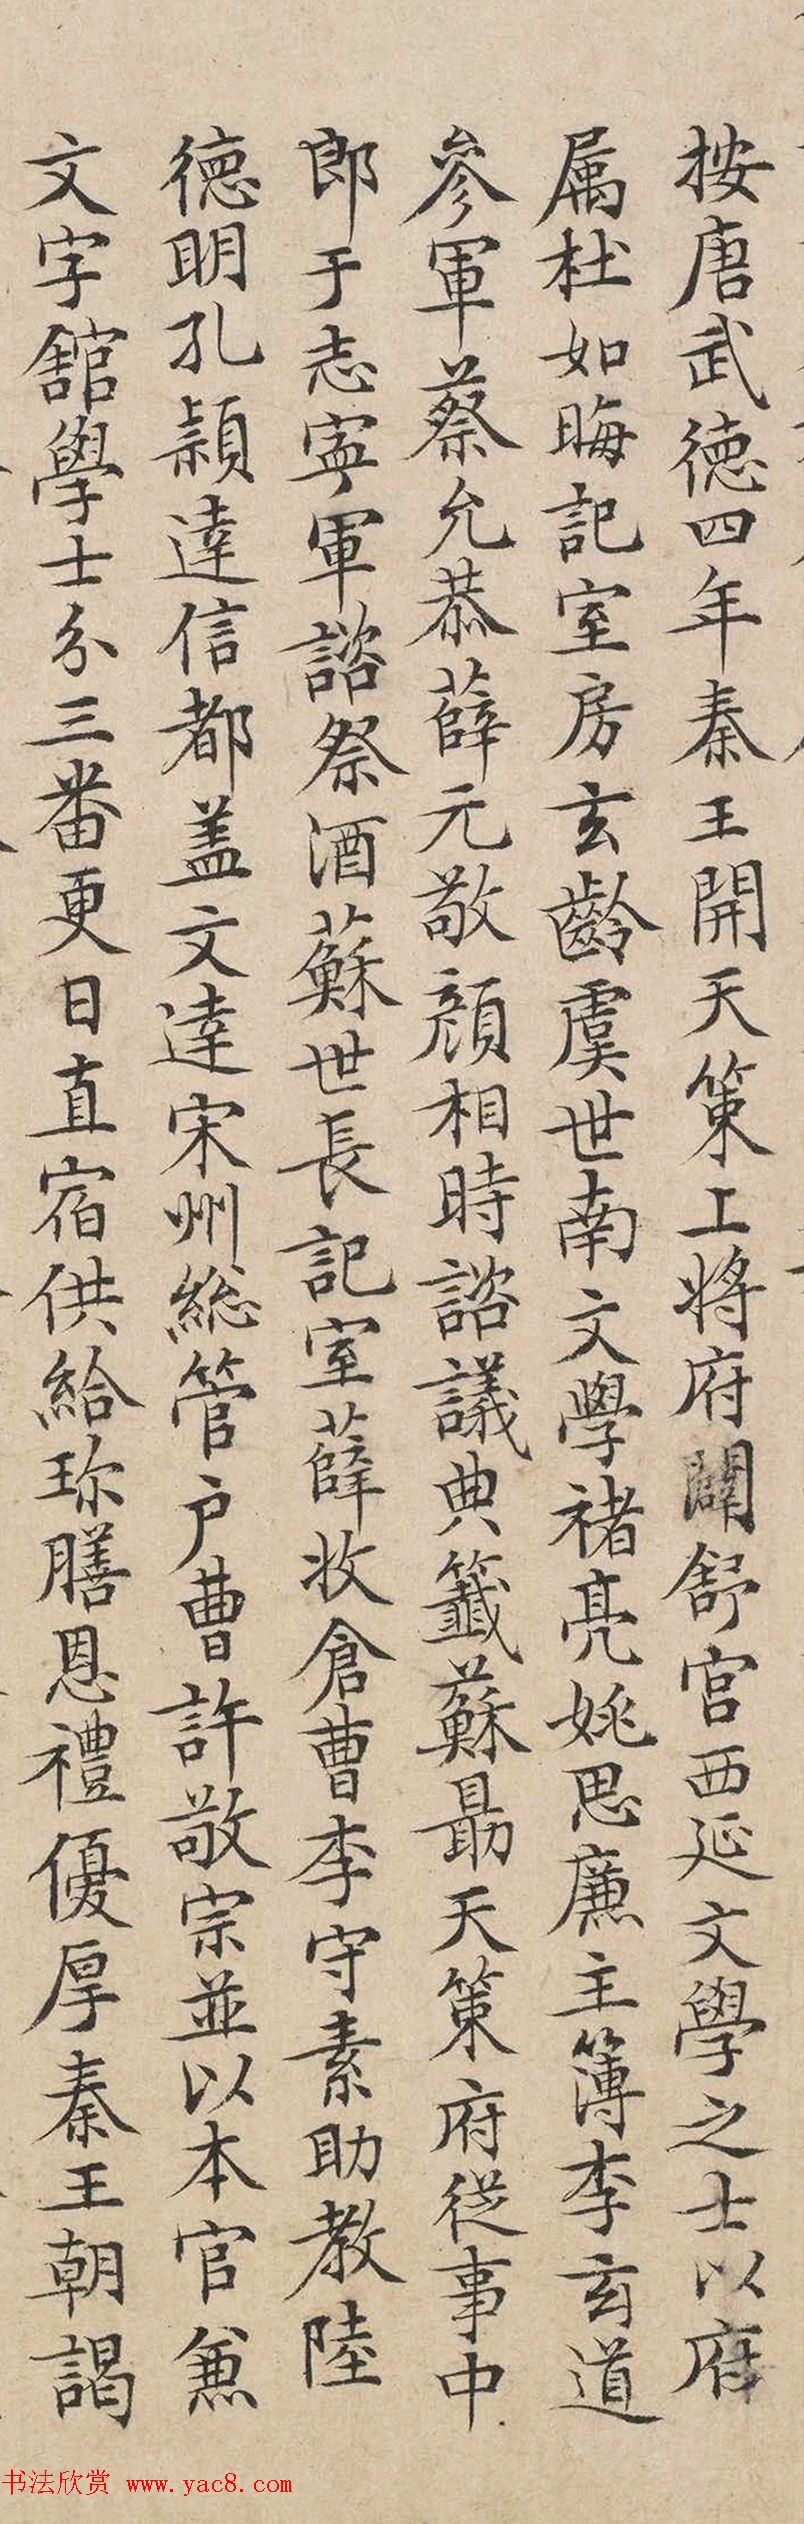 按唐武德四年秦王開天策上将府闢舒宫西延文學之士以府
属杜如晦記室房玄齡虞世南文學褚亮姚思廉主簿李玄道
參軍蔡允恭薛元敬顔相時諮議典籤蘇勗天策府從事中
郎于志寧軍諮祭酒蘇世長記室薛收倉曹李守素助教陸
德明孔穎達信都盖文達宋州総管户曹許敬宗並以本官兼
文字舘學士分三番更日直宿供給珎膳恩禮優厚秦王朝謁
书法欣赏 www.yac8.com